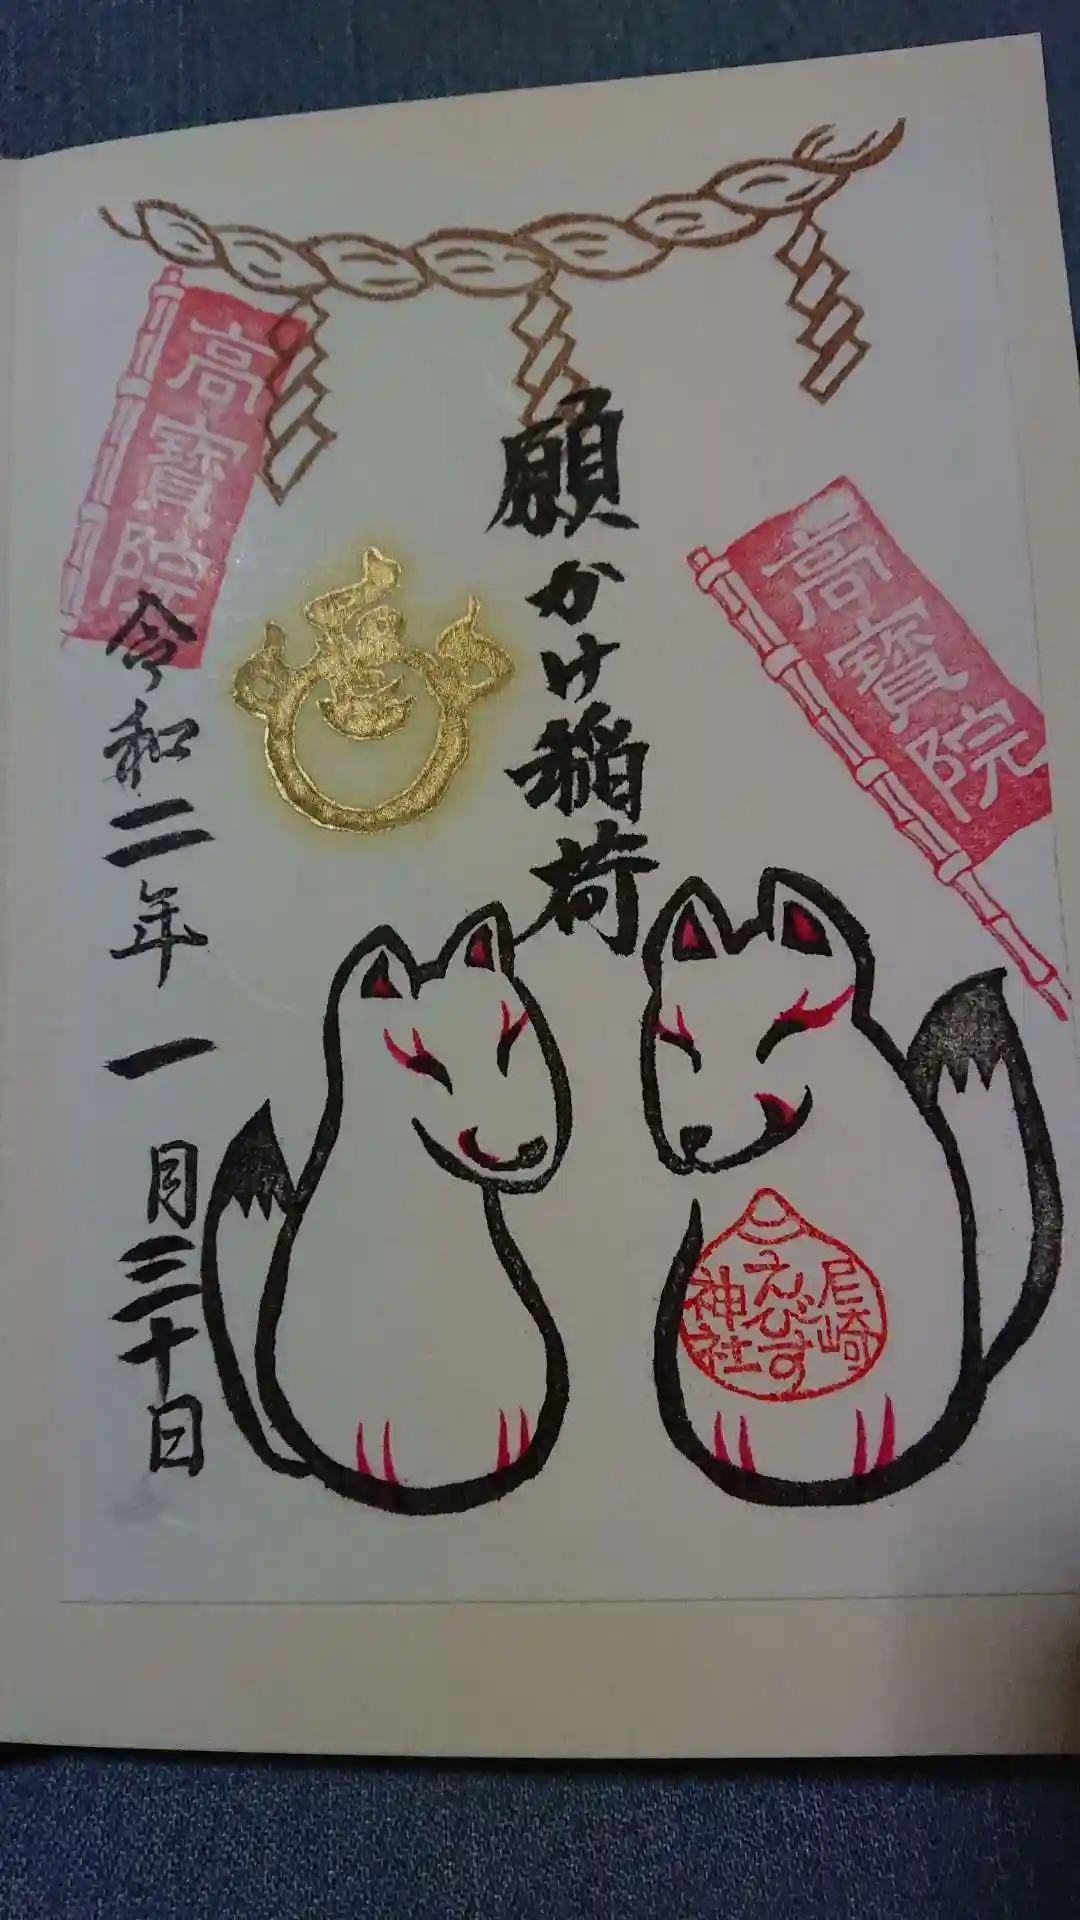 高寳院
願かけ稲荷
高寳院
尼崎
えびす
神社
令和二年一月三十日